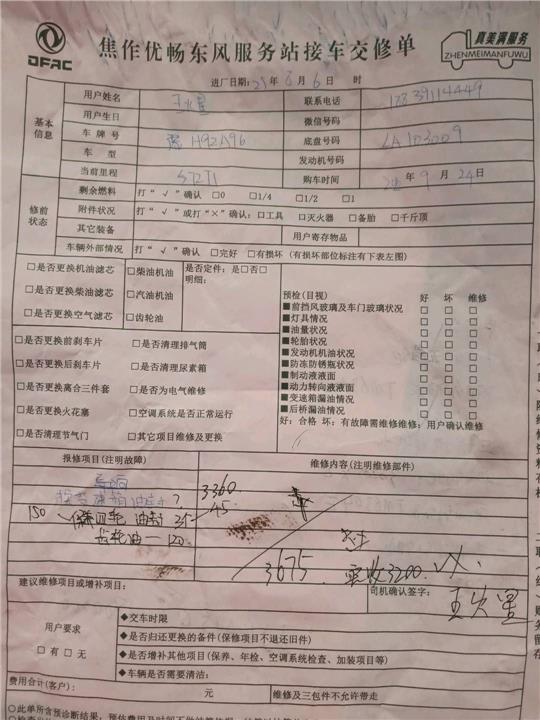 DFAC
焦作优畅东风服务站接车交修单
真美满服务
ZHENMEIMANFUWU
进厂日期:21年6月6日 时
基本信息
用户姓名 王火星 联系电话
用户生日 微信号码
车牌号 豫H92A96 底盘号码 LA103009
车型 发动机号码
当前里程 57271 购车时间 年9月24日
修前状态
剩余燃料 打“√”确认 □0 □1/4 □1/2 □1
附件状况 打“√”或打“×”确认:□工具 □灭火器 □备胎 □千斤顶
其它装备 用户寄存物品
车辆外部情况 打“√”确认 □完好 □有损坏(有损坏部位标注有下表左图)
□是否更换机油滤芯 □柴油机油 是否定件:是□否□
□是否更换柴油滤芯 □汽油机油 明细:
□是否更换空气滤芯 □齿轮油
预检(目视) 好 坏 维修
■前挡风玻璃及车门玻璃状况 □ □ □
■灯具情况 □ □ □
■油量状况 □ □ □
■轮胎状况 □ □ □
■发动机机油状况 □ □ □
■防冻防锈瓶状况 □ □ □
■制动液液面 □ □ □
■动力转向液液面 □ □ □
■变速箱漏油情况 □ □ □
■后桥漏油情况 □ □ □
好:合格 坏:有故障需维修维修:用户确认维修
□是否更换前刹车片 □是否清理排气筒
□是否更换后刹车片 □是否清理尿素箱
□是否更换离合三件套 □是否为电气维修
□是否更换火花塞 □空调系统是否正常运行
□是否清理节气门 □其它项目维修及更换
报修项目(注明故障) 维修内容(注明维修部件)
3360
45
150 保四轮 油封 35
齿轮油一 120
3675 实收3200.
建议维修项目或增补项目:
司机确认签字: 王火星
用户要求
□有 □无
◆交车时限
◆是否归还更换的备件(保修项目不退还旧件)
◆是否增补其他项目(保养、年检、空调系统检查、加装项目等)
◆车辆是否需要清洁:
费用合计(客户): 元 维修及三包件不允许带走